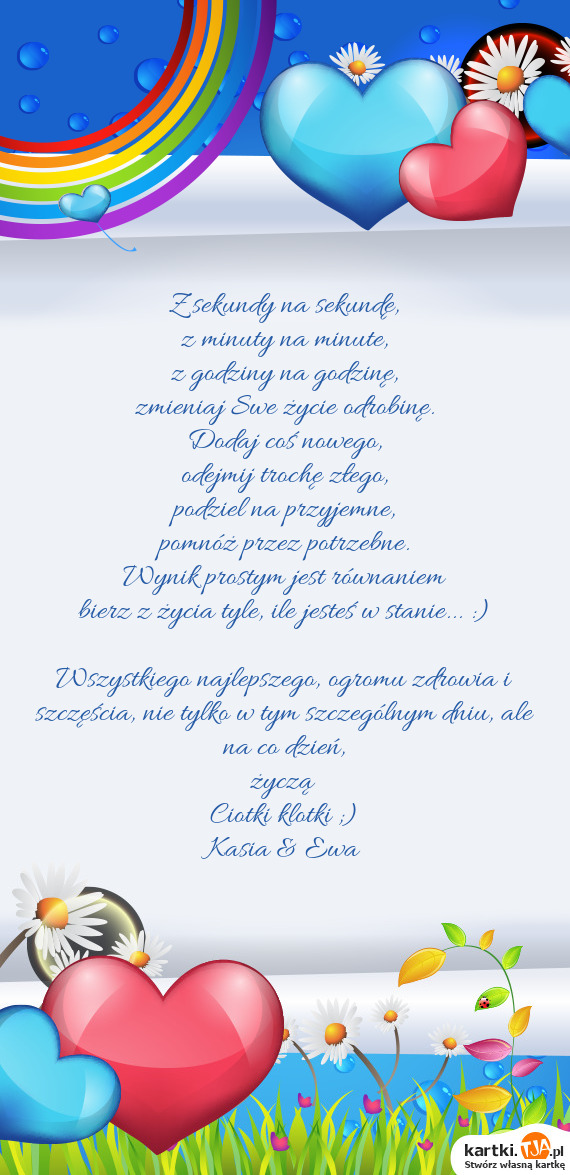 Z sekundy na sekundę,
z minuty na minute,
z godziny na godzinę,
zmieniaj Swe życie odrobinę.
Dodaj coś nowego,
odejmij trochę złego,
podziel na przyjemne,
pomnóż przez potrzebne.
Wynik prostym jest równaniem
bierz z życia tyle, ile jesteś w stanie... :)
Wszystkiego najlepszego, ogromu zdrowia i
szczęścia, nie tylko w tym szczególnym dniu, ale
na co dzień,
życzą
Ciotki klotki ;)
Kasia & Ewa
kartki.TJA.pl
Stwórz własną kartkę